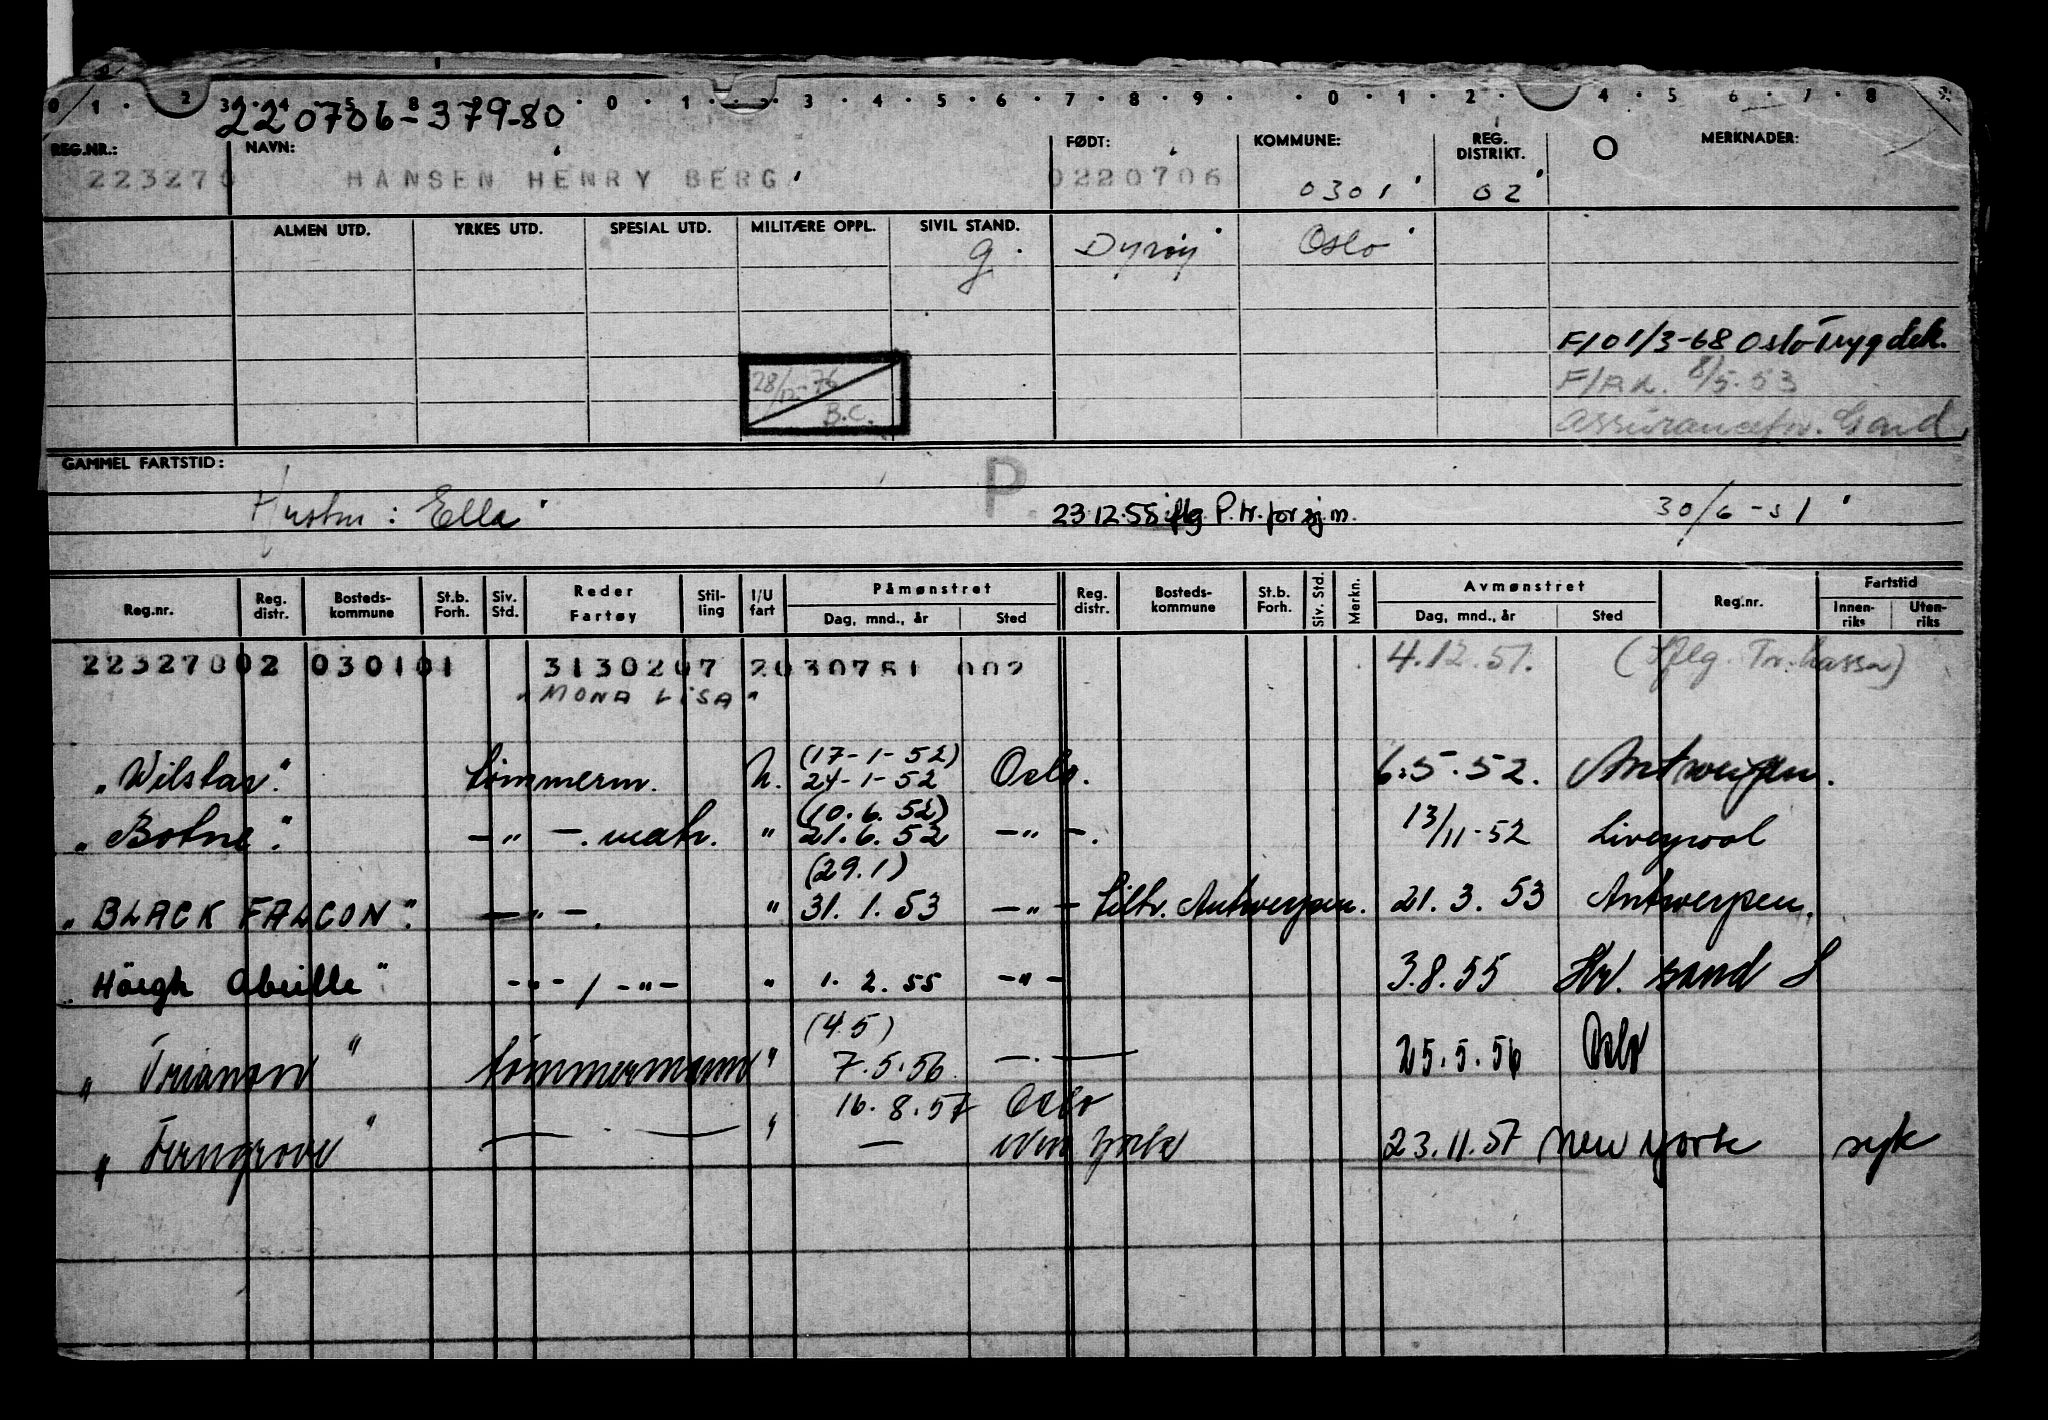 0 1 2 3 4 5 8 9 0 1 2 3 4 5 6 7 8 9 0 1 2 4 5 6 7 8 9
220706-379-80
REG.NR.: NAVN: FØDT: KOMMUNE: REG. DISTRIKT. MERKNADER:
223270 HANSEN HENRY BERG 0220706 0301 02
ALMEN UTD. YRKES UTD. SPESIAL UTD. MILITÆRE OPPL. SIVIL STAND.
g. Dyrøy Oslo
F/O 1/3-68 Oslo Trygdek.
28/12-76 F/A.d. 8/5.53
B.C. assurancefor. Gard
GAMMEL FARTSTID: P
Hustru: Ella 23.12.58 iflg. P.tr. for sj.m. 30/6-51
Reg.nr. Reg. distr. Bosteds-kommune St.b. Forh. Siv. Std. Reder Fartøy Stil-ling I/U fart Påmønstret Dag, mnd., år Sted Reg. distr. Bosteds-kommune St.b. Forh. Siv. Std. Merkn. Avmønstret Dag, mnd., år Sted Reg.nr. Fartstid Innen-riks Uten-riks
22327002 030101 3130207 2030751 002 4.12.51. (Iflg. Tr.kassa)
"MONA LISA"
(17-1-52)
"Wilstar". tømmerm. U. 24-1-52 Oslo. 6.5.52. Antwerpen.
(10.6.52)
"Botne". -"- -. matr. " 21.6.52 -"-. 13/11-52 Liverpool
(29.1)
"BLACK FALCON". -"-. " 31.1.53 -"- tiltr. Antwerpen. 21.3.53 Antwerpen.
"Höegh Abeille" -"-/-"- " 1.2.55 -"- 3.8.55 Kr.sand S
(4.5)
"Trianon" tømmermann " 7.5.56 -.- 25.5.56 Oslo
16.8.57 Oslo
"Ferngrove" -.- " - New York 23.11.57 New York syk